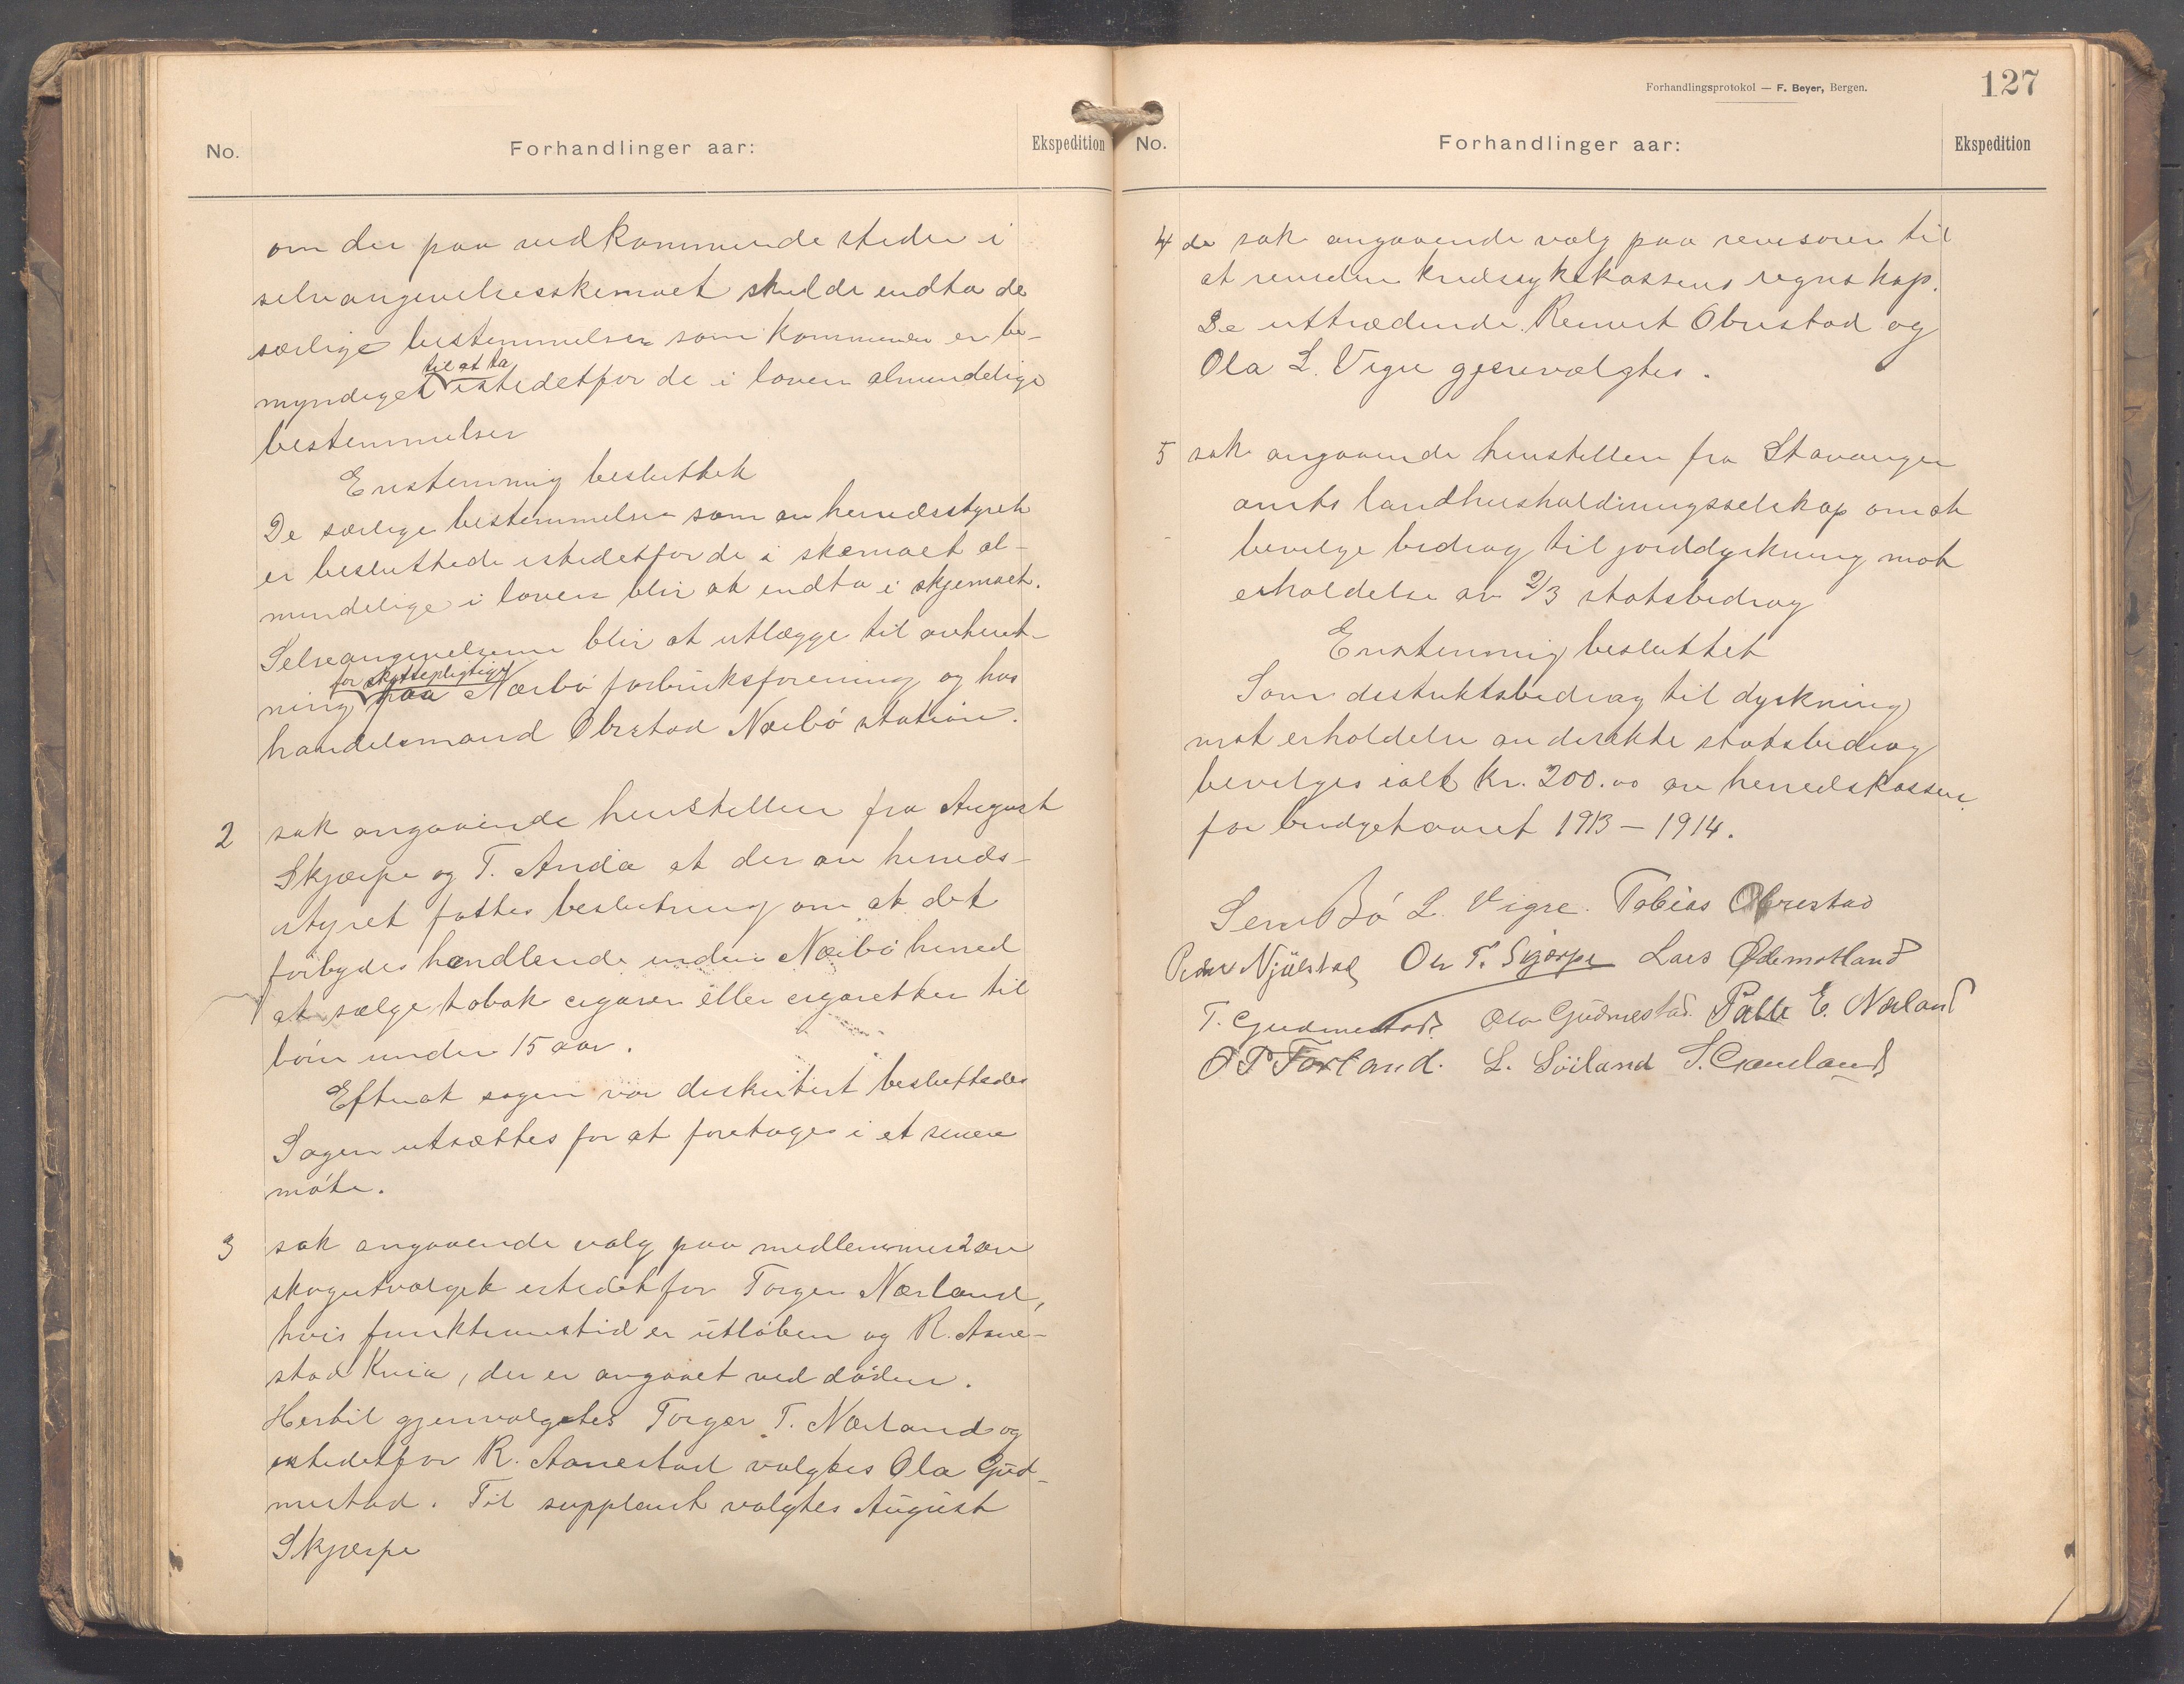 No.
Forhandlinger aar:
Ekspedition
om der paa vedkommende steder i
selvangivelsesskemaet skulde indta de
særlige bestemmelser som kommunen er be-
til at ta
myndiget istedetfor de i loven almindelige
bestemmelser
Enstemmig besluttet
De særlige bestemmelser som av herredsstyret
er besluttede istedetfor de i skemaet al-
mindelige i loven blir at indta i skjemaet.
Selvangivelserne blir at utlægge til avhent-
for skattepligtige
ning paa Nærbø forbruksforening og hos
handelsmand Obrestad Nærbø station.
2 sak angaaende henstillen fra August
Skjærpe og T. Anda at der av herreds-
styret fattes beslutning om at det
forbydes handlende inden Nærbø herred
at sælge tobak cigarer eller cigaretter til
børn under 15 aar.
Efterat sagen var diskutert besluttedes
Sagen utsættes for at foretages i et senere
møte.
3 sak angaaende valg paa medlemmer av
skogutvalget istedetfor Torger Nærland,
hvis funktionstid er utløben og R. Aane-
stad Kvia, der er avgaaet ved døden.
Hertil gjenvalgtes Torger T. Nærland og
istedetfor R. Aanestad valgtes Ola Gud-
mestad. Til supplant valgtes August
Skjærpe
Forhandlingsprotokol — F. Beyer, Bergen.
127
No.
Forhandlinger aar:
Ekspedition
4 de sak angaaende valg paa revisorer til
at revidere kredssykekassens regnskap.
De uttrædende Reinert Obrestad og
Ola L. Vigre gjenvalgtes.
5 sak angaaende henstillen fra Stavanger
amts landhusholdningsselskap om at
bevilge bidrag til jorddyrkning mot
erholdelse av 2/3 statsbidrag
Enstemmig besluttet
Som distriktsbidrag til dyrkning
mot erholdelse av direkte statsbidrag
bevilges ialt kr. 200.00 av herredskassen
for budgetaaret 1913 – 1914.
Bø L. Vigre. Tobias Obrestad
Peder Njølstad Ole T. Skjærpe Lars Ødemotland
T. Gudmestad. Ola Gudmestad. Palle E. Nærland
O T Torland. L. Söiland S. Grauland